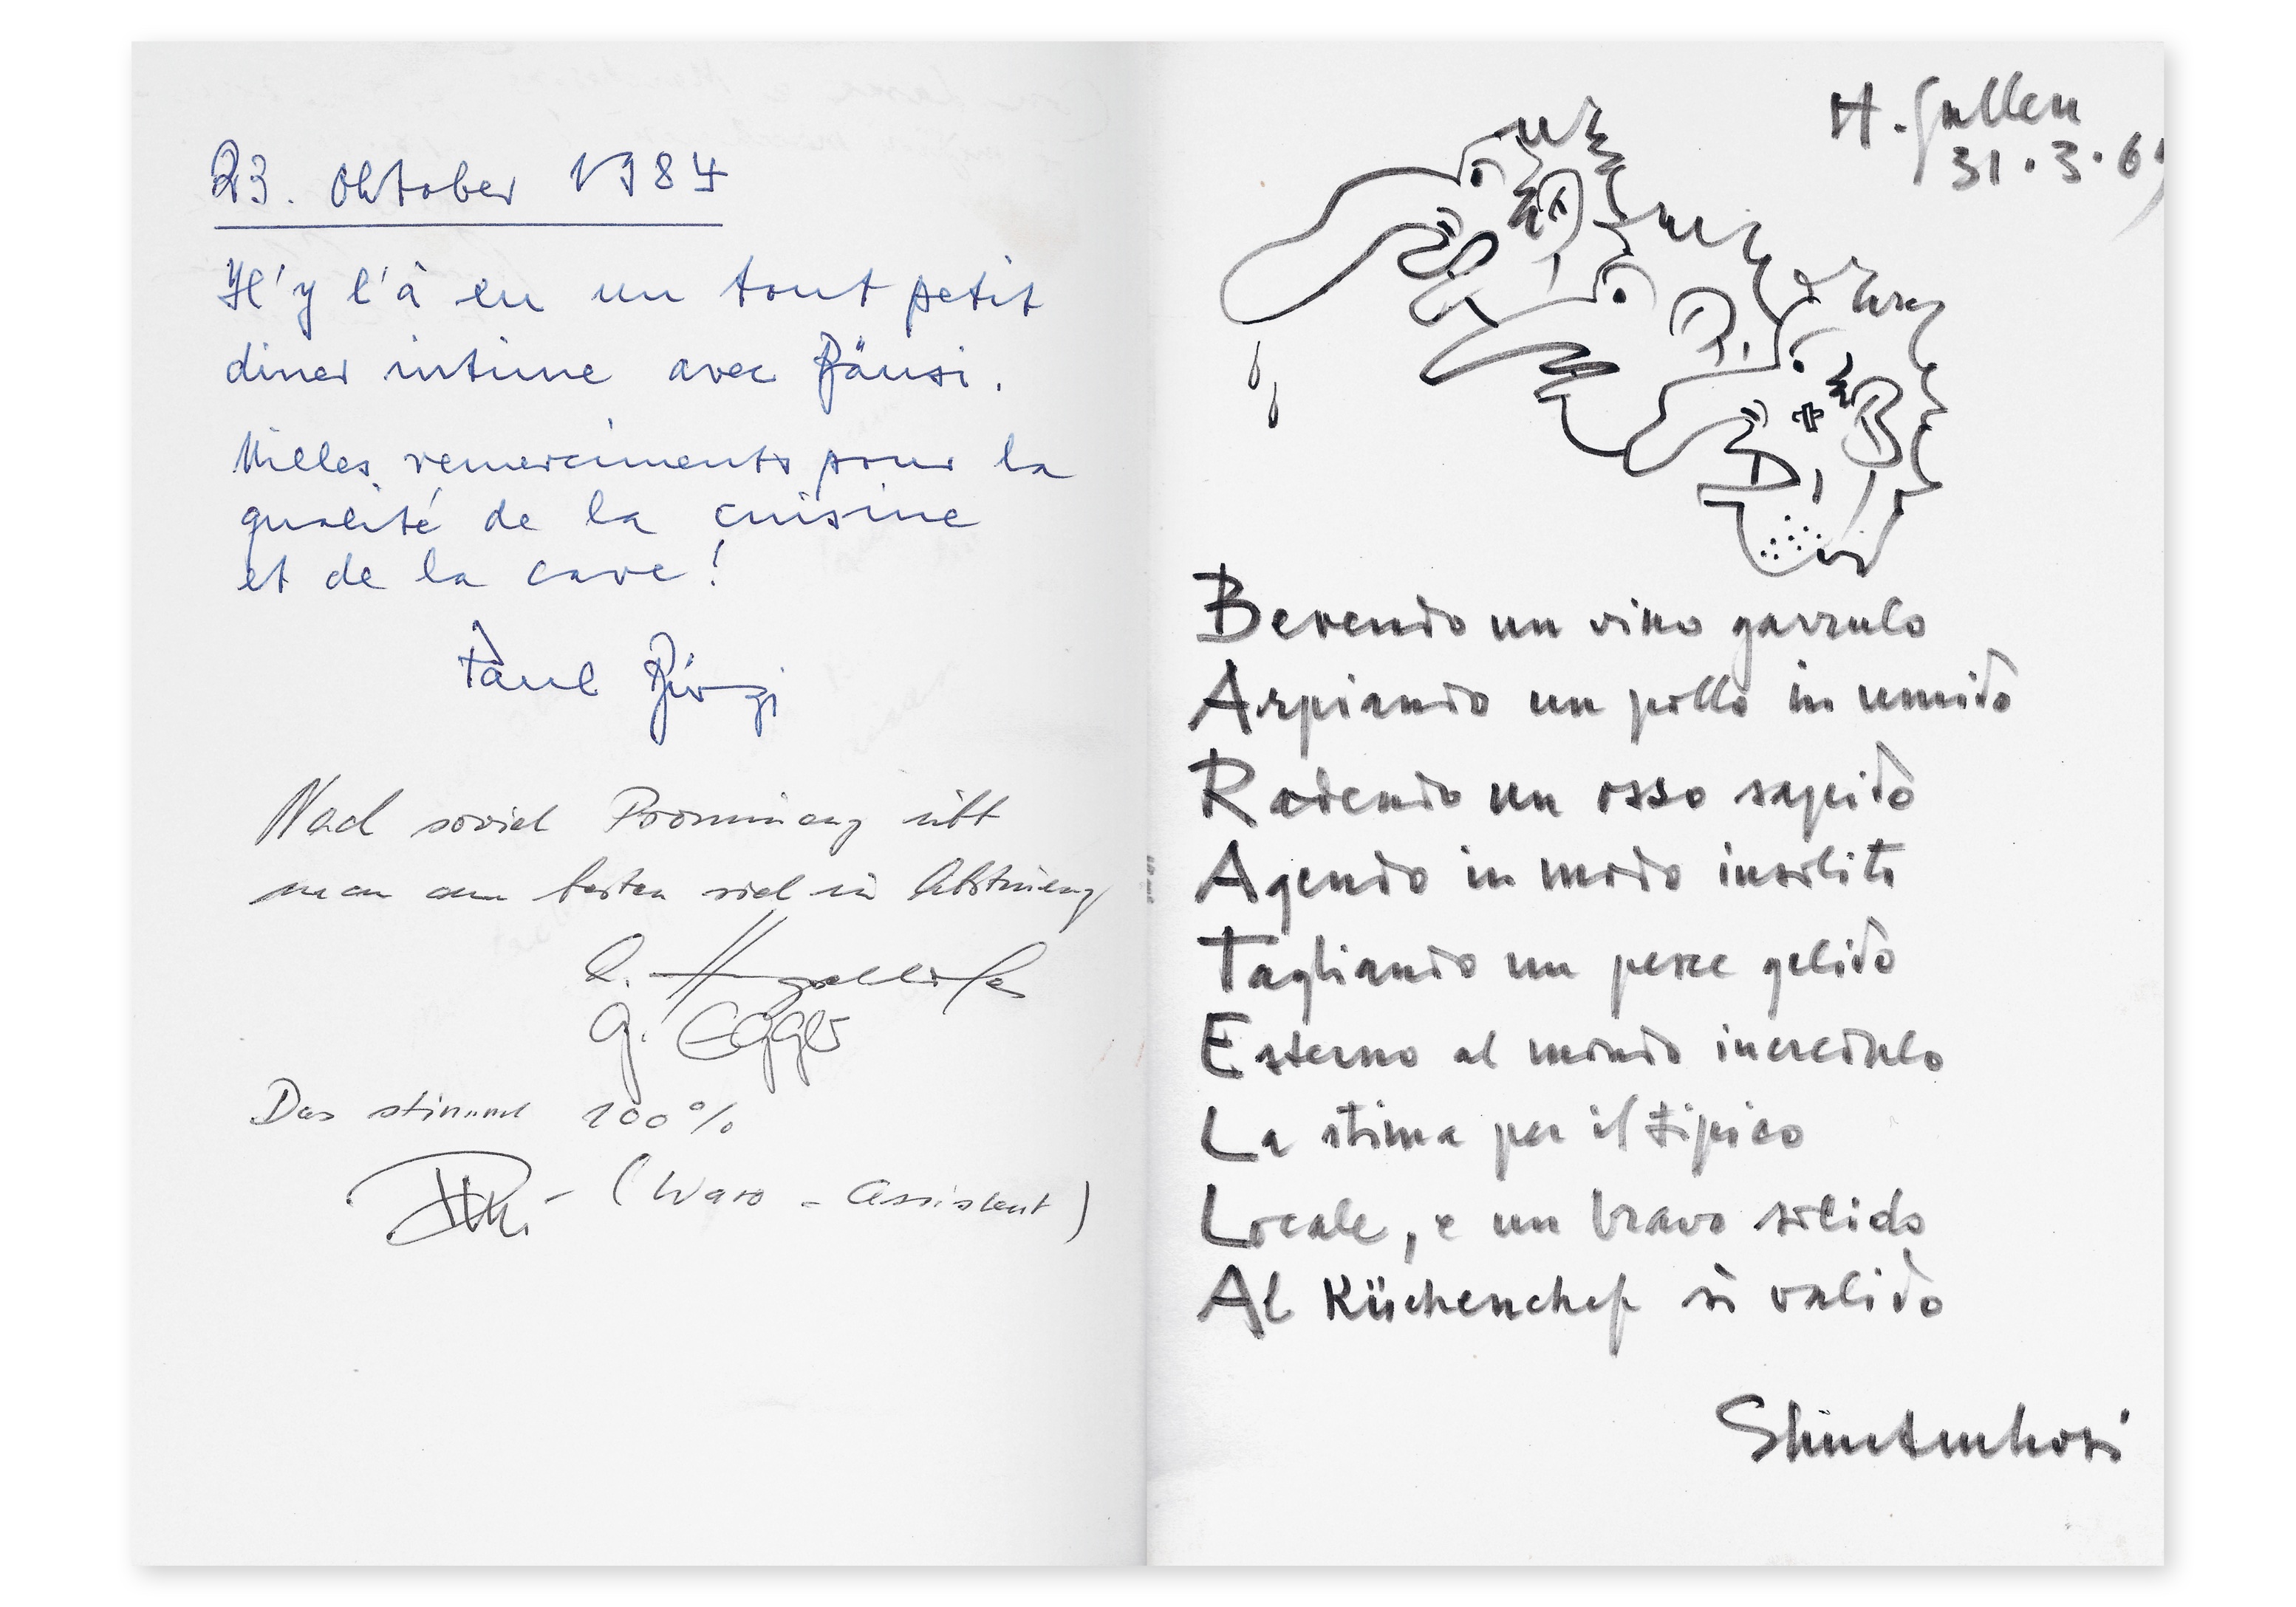 23. Oktober 1984
Il'y l'à eu un tout petit
diner intime avec Bänsi.
Milles remerciments pour la
qualité de la cuisine
et de la cave!
Paul Bürgi
Nach soviel Prominenz übt
man am besten sich in Abstinenz
G. Egger
Das stimmt 100%
(Waro - Assistent)
H. Gallen
31.3.69
Bevendo un vino garrulo
Arpiando un pollo in umido
Rodendo un osso sapido
Agendo in modo insolito
Tagliando un pesce gelido
Esterno al mondo incredulo
La stima per il tipico
Locale, e un bravo solido
Al Küchenchef sì valido